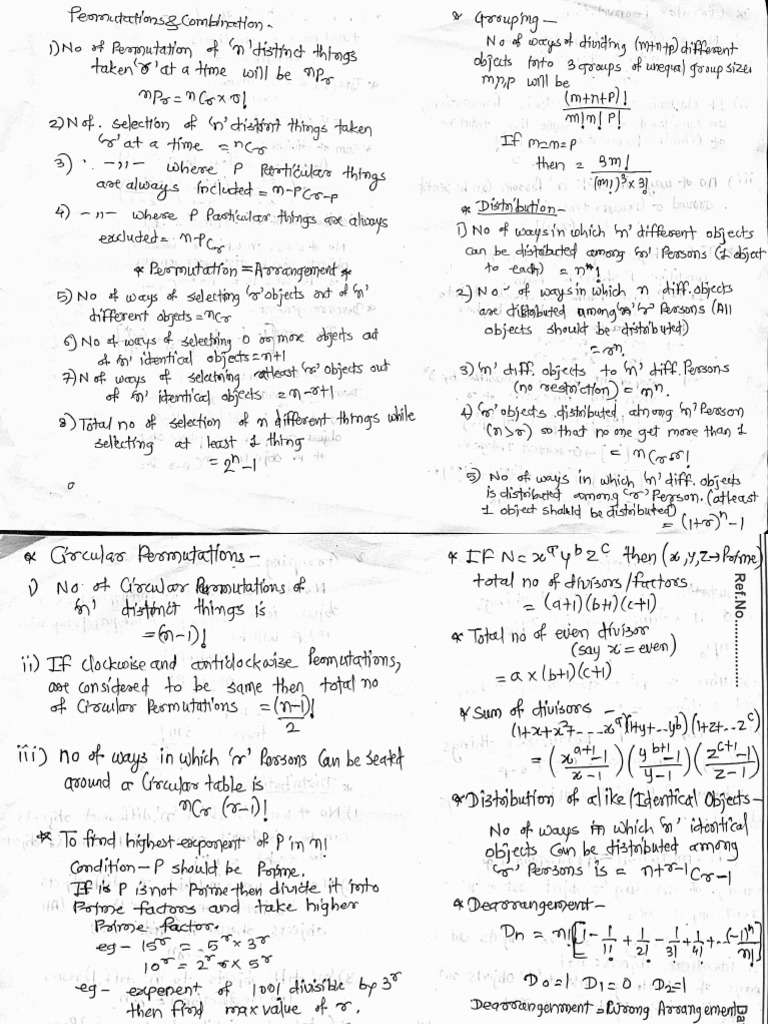 Permutations & Combination -
1) No of Permutation of 'n' distinct things
taken 'r' at a time will be nPr
nPr = nCr × r!
2) N of. selection of 'n' distinct things taken
'r' at a time = nCr
3) -,,- where P Particular things
are always included = n-pCr-p
4) -,,- where P Particular things are always
excluded = n-pCr
* Permutation = Arrangement *
5) No of ways of selecting 'r' objects out of 'n'
different objects = nCr
6) No of ways of selecting 0 or more objects out
of 'n' identical objects = n+1
7) N of ways of selecting atleast 'r' objects out
of 'n' identical objects = n-r+1
8) Total no of selection of n different things while
selecting at least 1 thing
= 2^n - 1
* Grouping -
No of ways of dividing (m+n+p) different
objects into 3 groups of unequal group sizes
m,n,p will be
(m+n+P)! / m! n! P!
If m=n=p
then = 3m! / (m!)^3 × 3!
* Distribution -
1) No of ways in which 'n' different objects
can be distributed among 'n' Persons (1 object
to each) = n!
2) No of ways in which n diff. objects
are distributed among 'r' Persons (All
objects should be distributed)
= r^n
3) 'n' diff. objects to 'n' diff. Persons
(no restriction) = n^n.
4) 'r' objects distributed among 'n' Person
(n>r) so that no one get more than 1
= nCr r!
5) No of ways in which 'n' diff. objects
is distributed among 'r' Person. (atleast
1 object should be distributed)
= (1+r)^n - 1
* Circular Permutations -
i) No of Circular Permutations of
'n' distinct things is
= (n-1)!
ii) If clockwise and anticlockwise Permutations,
are considered to be same then total no
of Circular Permutations = (n-1)! / 2
iii) no of ways in which 'r' Persons can be seated
around a Circular table is
nCr (r-1)!
* To find highest exponent of P in n!
Condition - P should be Prime.
If is P is not Prime then divide it into
Prime factors and take higher
Prime factor.
eg - 15^r = 5^r × 3^r
10^r = 2^r × 5^r
eg - exponent of 100! divisible by 3^r
then find max value of r.
* IF N = x^a y^b z^c then (x, y, z → Prime)
total no of divisors/factors
= (a+1)(b+1)(c+1)
* Total no of even divisor
(say x = even)
= a × (b+1)(c+1)
* Sum of divisors -
(1+x+x^2+....x^a)(1+y+..y^b)(1+z+..z^c)
= (x^(a+1)-1 / x-1)(y^(b+1)-1 / y-1)(z^(c+1)-1 / z-1)
* Distribution of alike/Identical Objects -
No of ways in which 'n' identical
objects can be distributed among
'r' Persons is = n+r-1Cr-1
* Dearrangement -
Dn = n! [1 - 1/1! + 1/2! - 1/3! + 1/4! + ..(-1)^n / n!]
D0=1 D1=0 D2=1
Dearrangement = Wrong Arrangement
Ref.No.............
Da